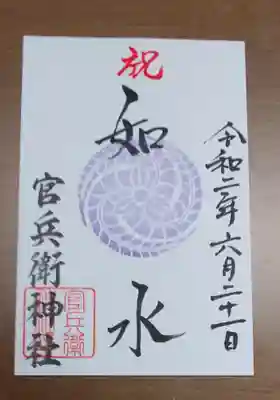 祝
令和二年六月二十一日
如水
官兵衛神社
官兵衛